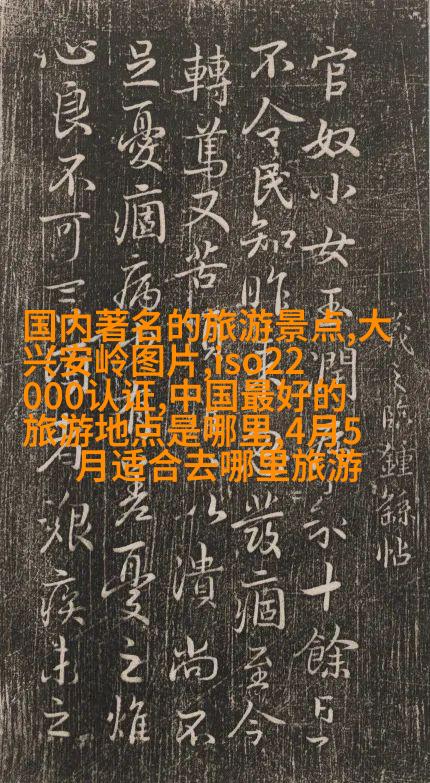 羲之臨鍾繇帖
官奴小女玉潤来十餘日
不令民知昨来發痼至今
轉篤又苦以潰尚不
足憂痼病者憂之燋
心良不可艱疾未之
国内著名的旅游景点,大
兴安岭图片,iso22
000认证,中国最好的
旅游地点是哪里,4月5
月适合去哪里旅游